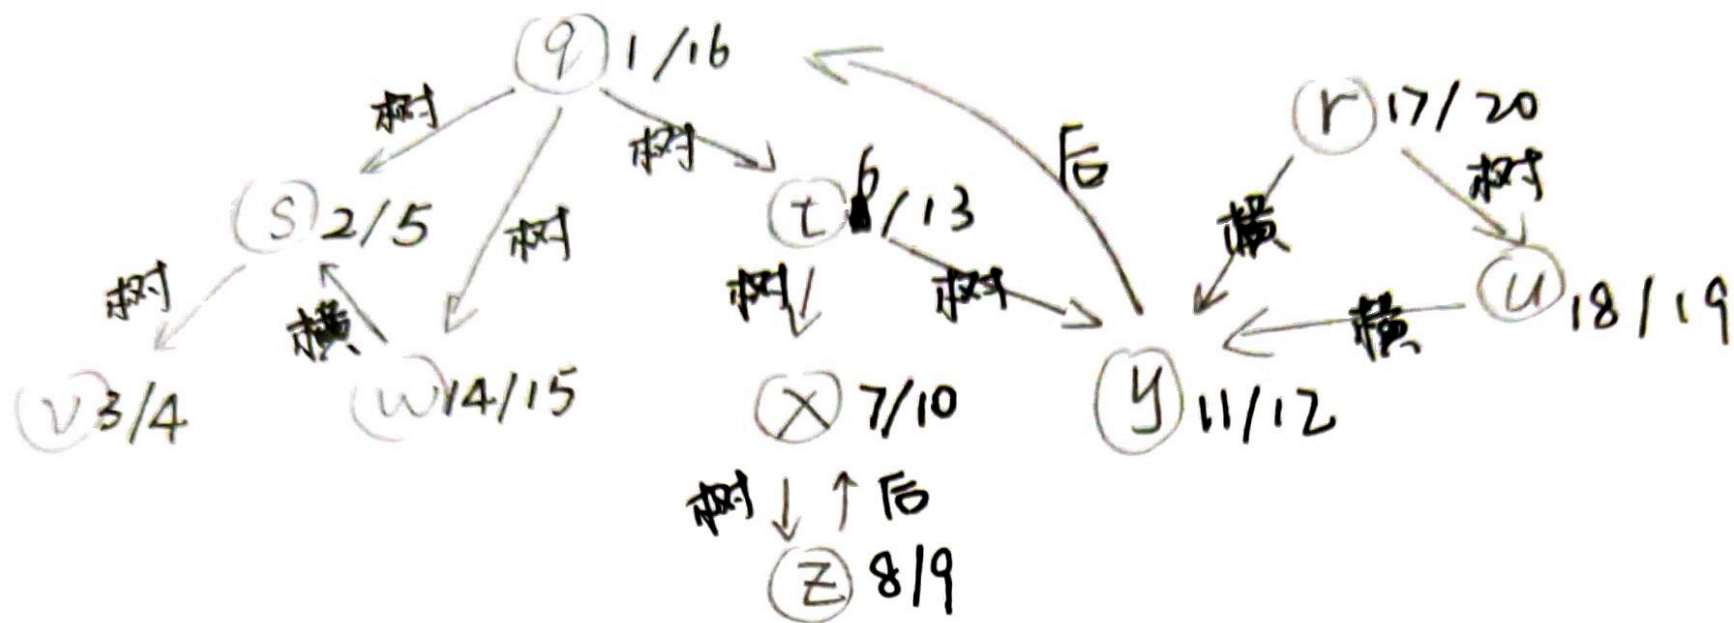 q 1/16
树
树
后
r 17/20
树
s 2/5
树
t 6/13
横
树
树
横
树
树
横
u 18/19
v 3/4
w 14/15
x 7/10
y 11/12
树
后
z 8/9